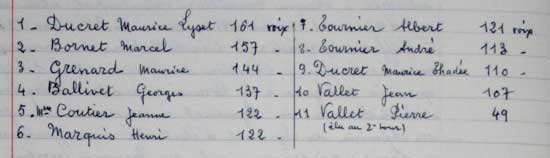 1 - Ducret Maurice Lyset 161 voix
2 - Bornet Marcel 157 -
3 - Grenard Maurice 144 -
4 - Ballivet Georges 137 -
5 - Mme Coutier Jeanne 122 -
6 - Marquis Henri 122 -
7 - Tournier Albert 121 voix
8 - Tournier André 113 -
9 - Ducret Maurice Thadée 110 -
10 Vallet Jean 107
11 Vallet Pierre 49
(élu au 2e tour)